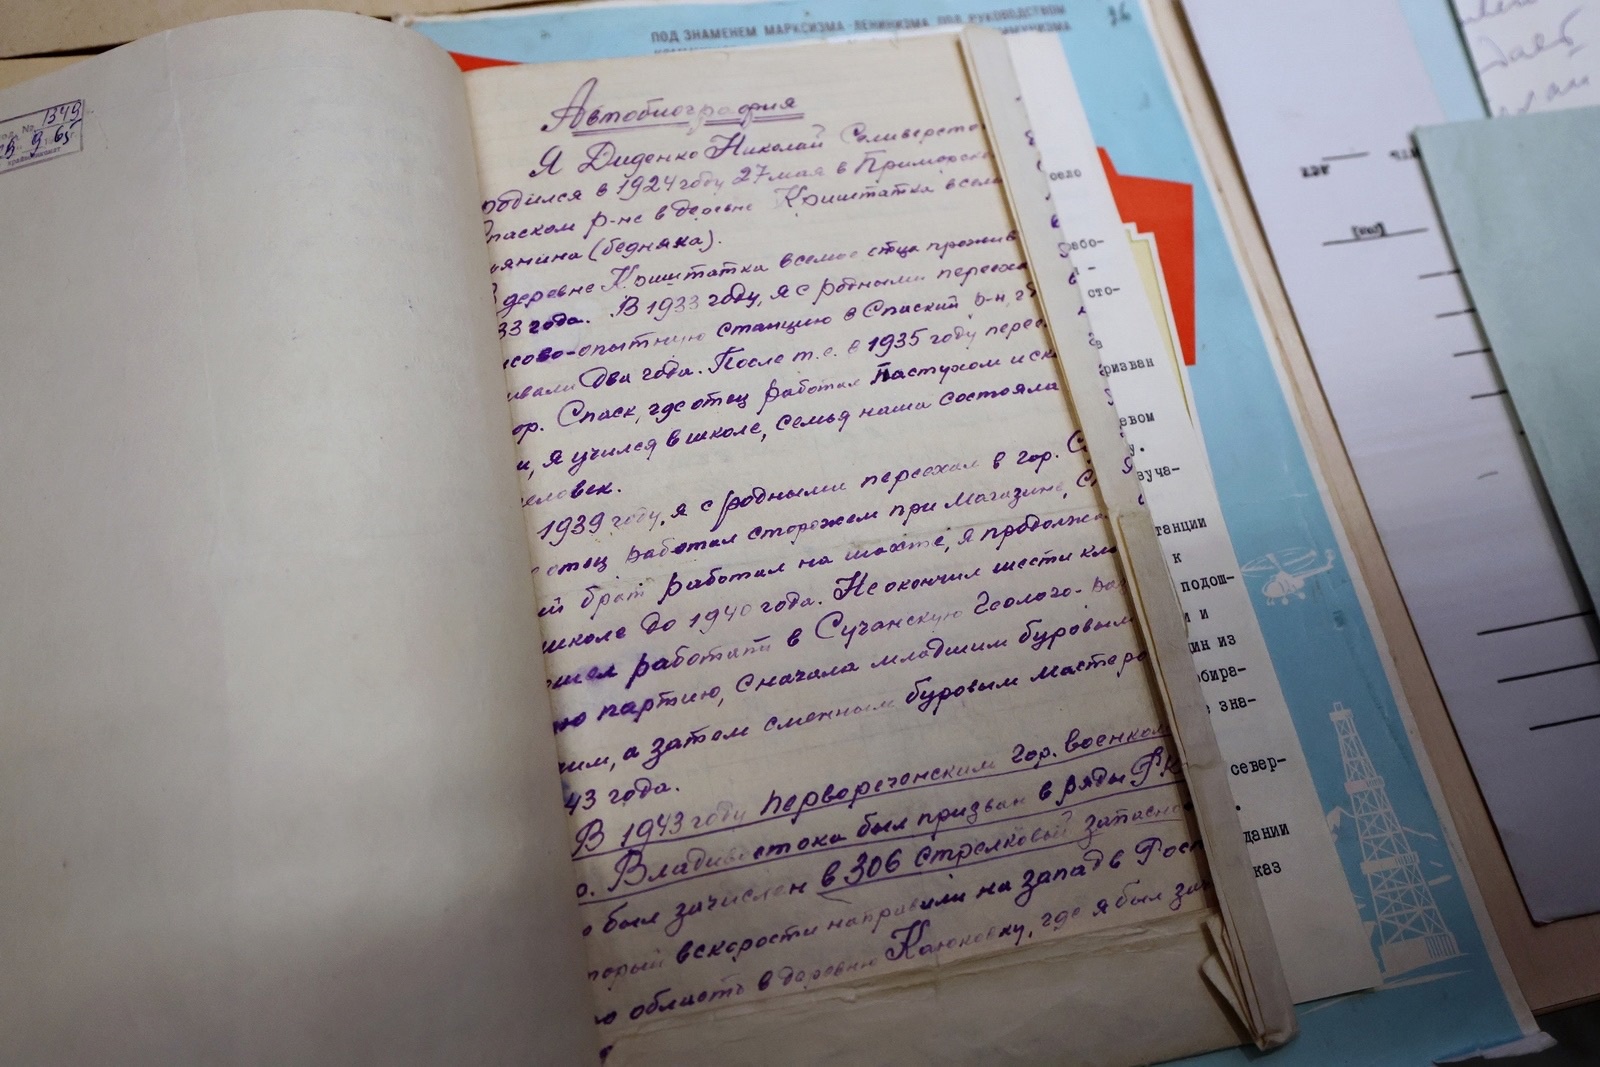 1349
9 65
ПОД ЗНАМЕНЕМ МАРКСИЗМА-ЛЕНИНИЗМА ПОД РУКОВОДСТВОМ
36
Автобиография
Я Диденко Николай Селиверсто
родился в 1924 году 27 мая в Приморско
Спаском р-не в деревне Криштатка в семь
янина (бедняка).
В деревне Криштатка в семье отца прожив
33 года. В 1933 году, я с родными переехал
исово-опытную станцию в Спаский р-н, г
ивали два года. После т.е. в 1935 году перее
ор. Спаск, где отец работал Пастухом и ск
и, я учился в школе, семья наша состояла
человек.
1939 году, я с родными переехал в гор. С
отец работал сторожем при магазине, С
ий брат работал на шахте, я продолжа
школе до 1940 года. Не окончил шести кла
ошел работать в Сучанскую Геолого-раз
ю партию, сначала младшим буровым
чим, а затем сменным буровым мастеро
43 года.
В 1943 году Первореченским гор. военком
о. Владивостока был призван в ряды РК
о был зачислен в 306 стрелковый запасно
торый вскорости направили на запад в Рос
ю область в деревню Каюковку, где я был за
село
або-
сто-
ризван
евом
у.
вуча-
танции
к
подош-
и и
дин из
обира-
зна-
север-
дании
каз
дает